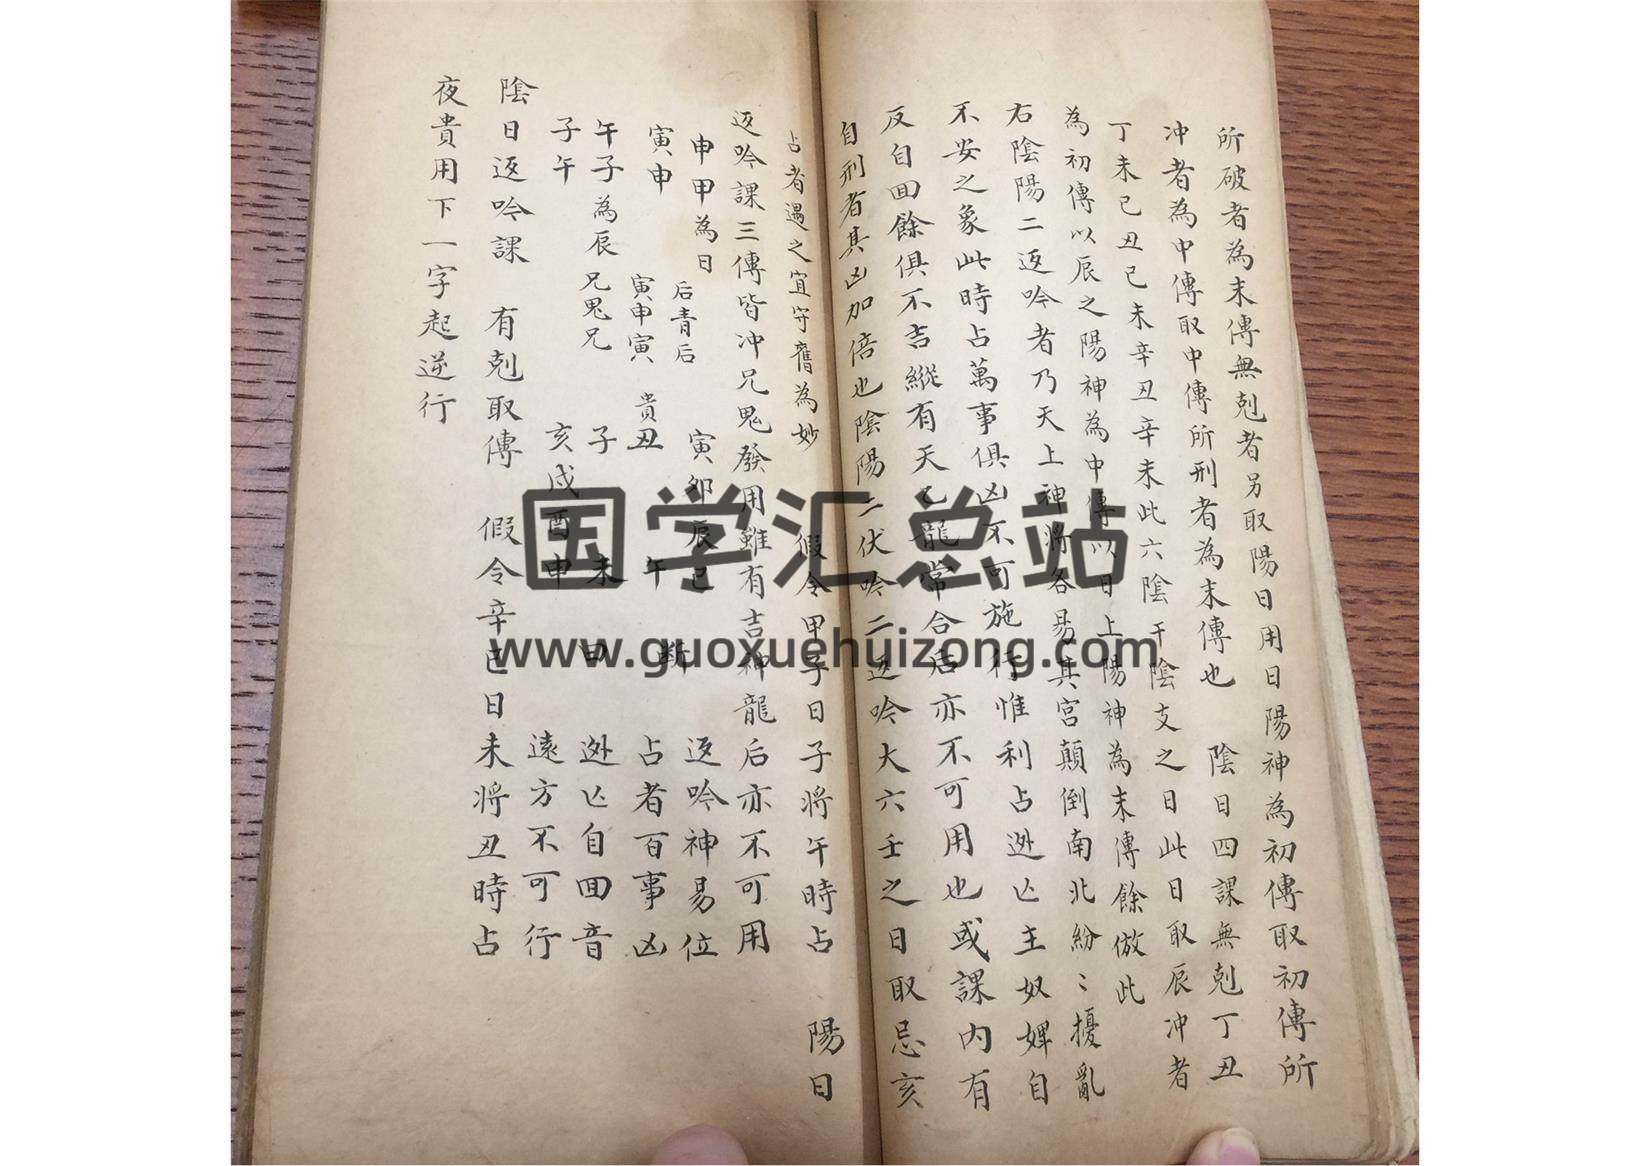 所破者為末傳無剋者另取陽日用日陽神為初傳取初傳所
冲者為中傳取中傳所刑者為末傳也 陰日四課無剋丁丑
丁未己丑己未辛丑辛未此六陰干陰支之日此日取辰冲者
為初傳以辰之陽神為中傳以日上陽神為末傳餘倣此
右陰陽二返吟者乃天上神將各易其宮顛倒南北紛〻擾亂
不安之象此時占萬事俱凶不可施行惟利占逃亡主奴婢自
反自回餘俱不吉縱有天乙龍常合后亦不可用也或課內有
自刑者其凶加倍也陰陽二伏吟二返吟大六壬之日取忌亥
占者遇之宜守舊為妙 假令甲子日子將午時占 陽日
返吟課三傳皆冲兄鬼發用雖有吉神龍后亦不可用
申甲為日 后青后 寅卯辰巳 返吟神易位
寅申 寅申寅 貴丑 午 斷 占者百事凶
午子為辰 兄鬼兄 子 未 曰 逃亡自回音
子午 亥戌酉申 遠方不可行
陰日返吟課 有剋取傳 假令辛巳日未將丑時占
夜貴用下一字起逆行
国学汇总站
www.guoxuehuizong.com